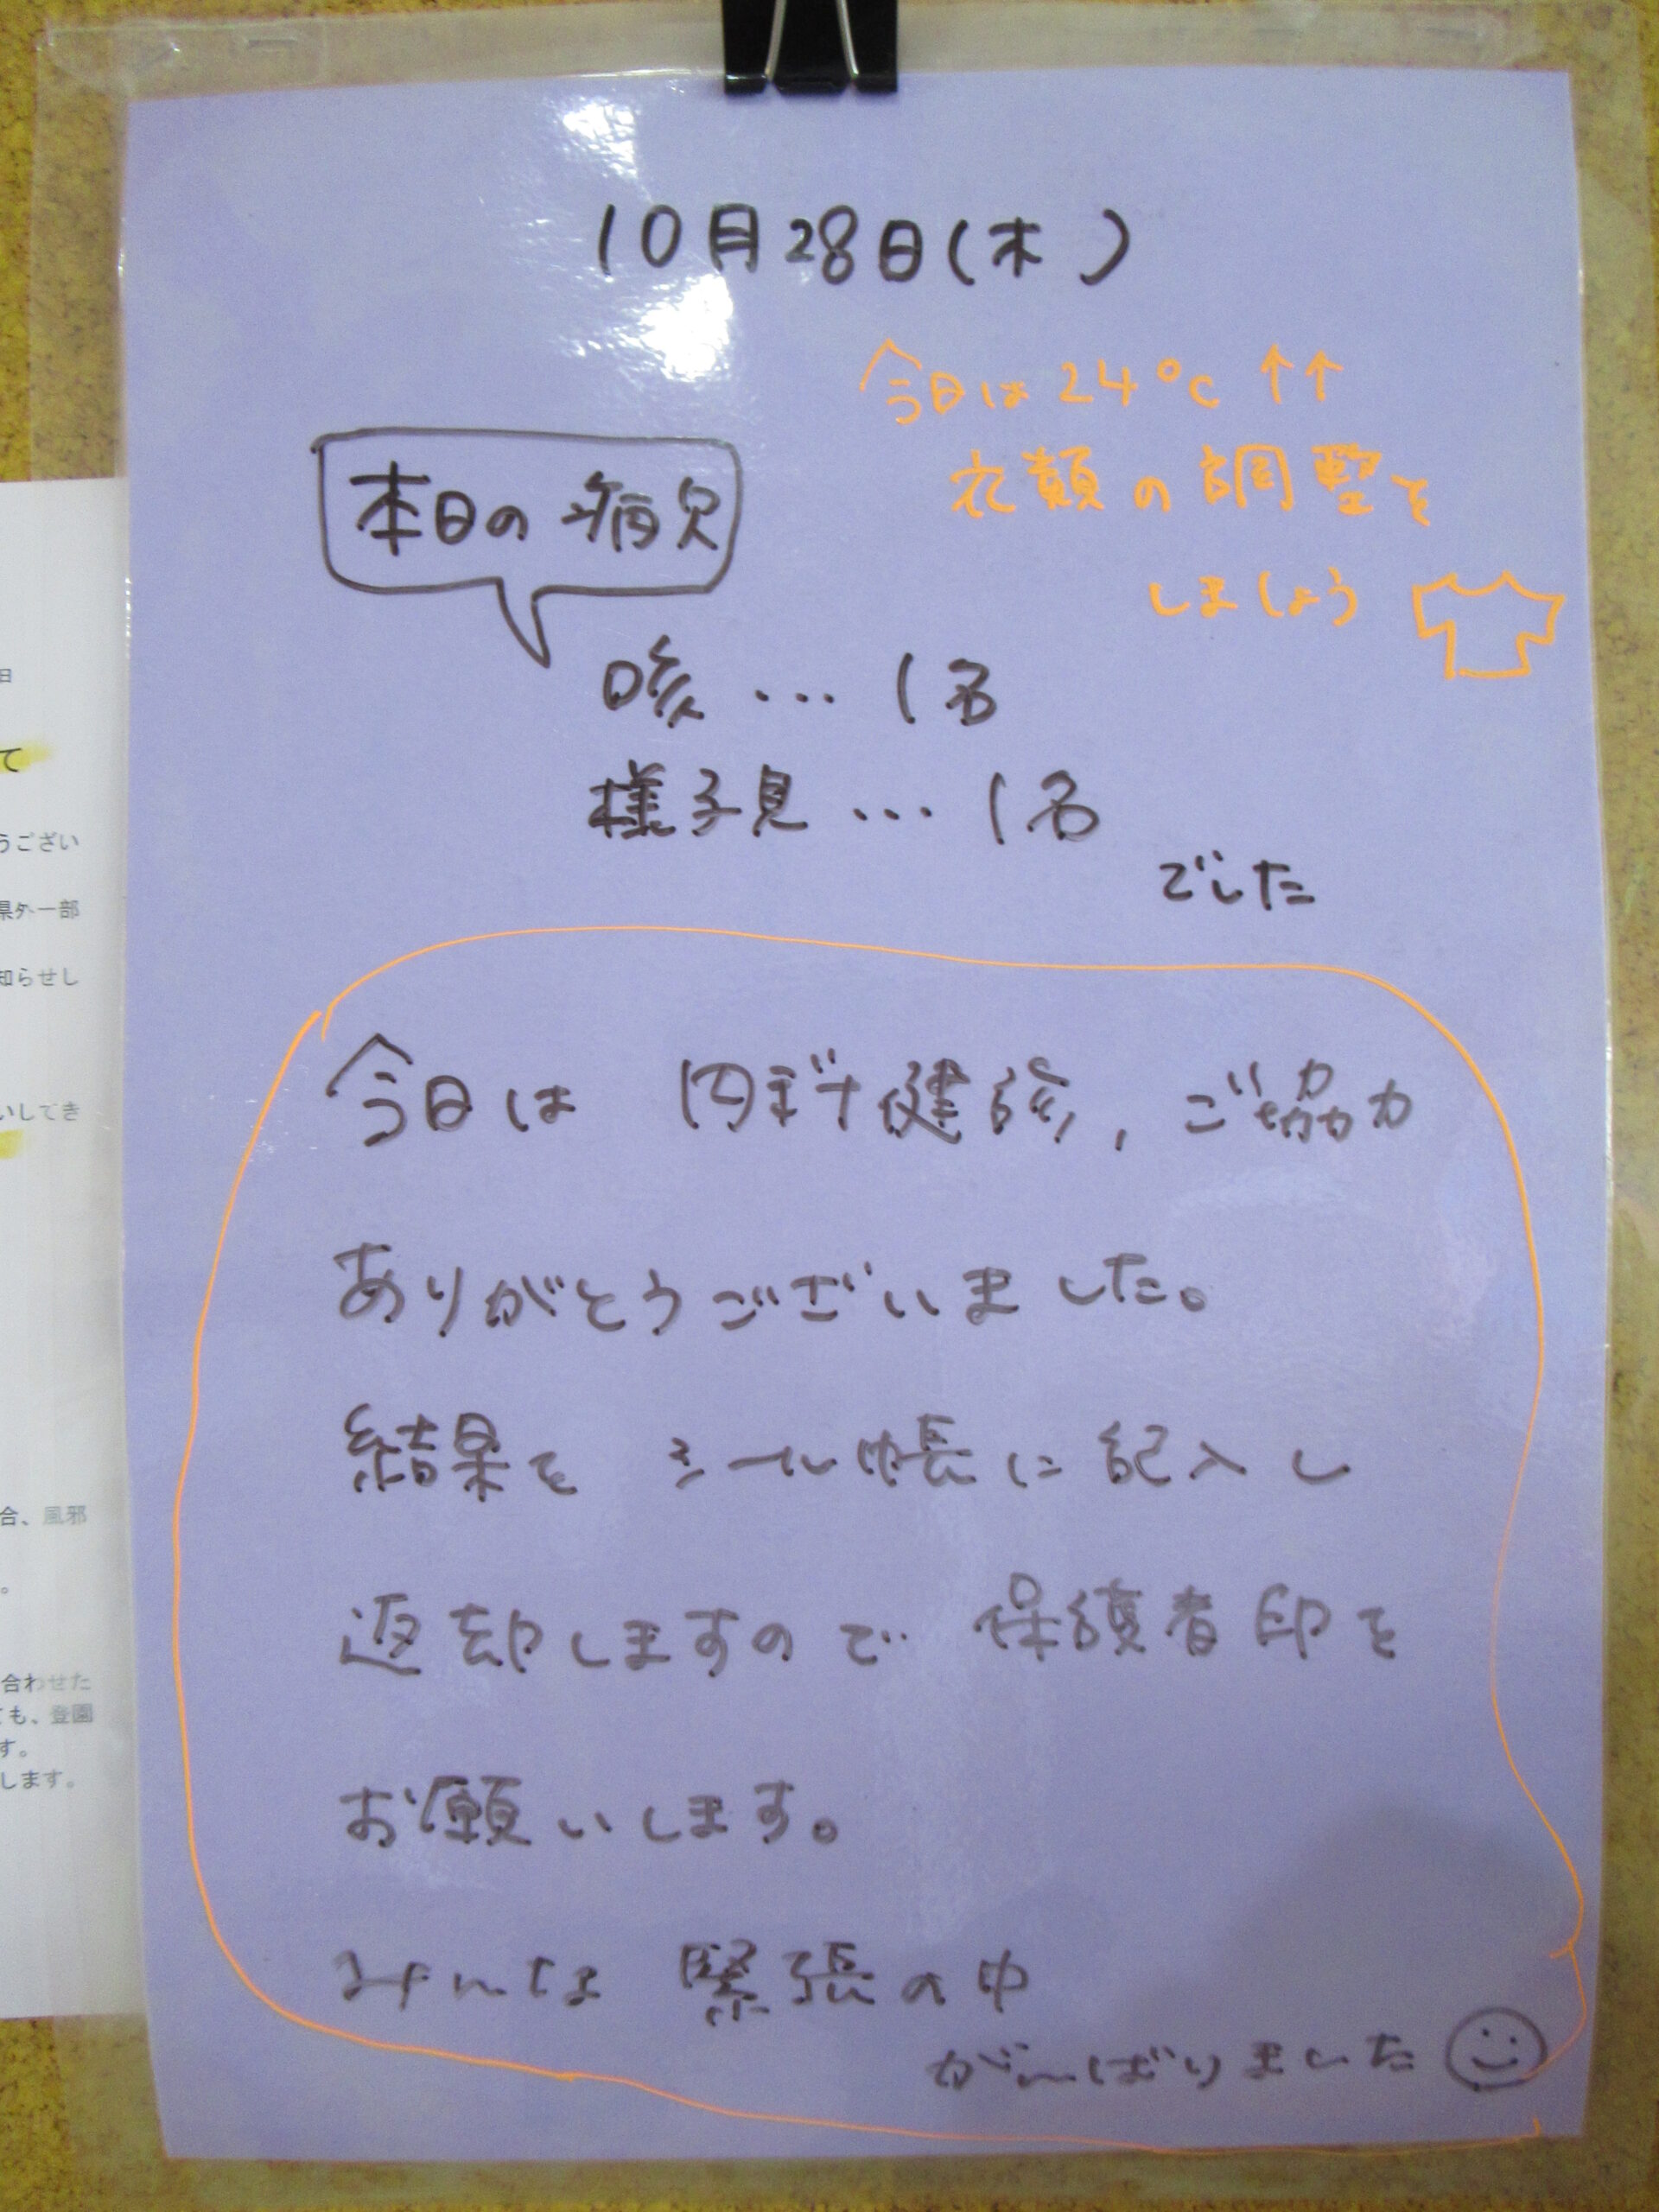 10月28日(木)
今日は24℃↑↑
衣類の調整を
しましょう
本日の病欠
咳…1名
様子見…1名
でした
今日は 内科健診、ご協力
ありがとうございました。
結果を シール帳に記入し
返却しますので 保護者印を
お願いします。
みんな 緊張の中
がんばりました
日
て
うござい
県外一部
知らせし
いしてき
合、風邪
。
合わせた
ても、登園
す。
します。